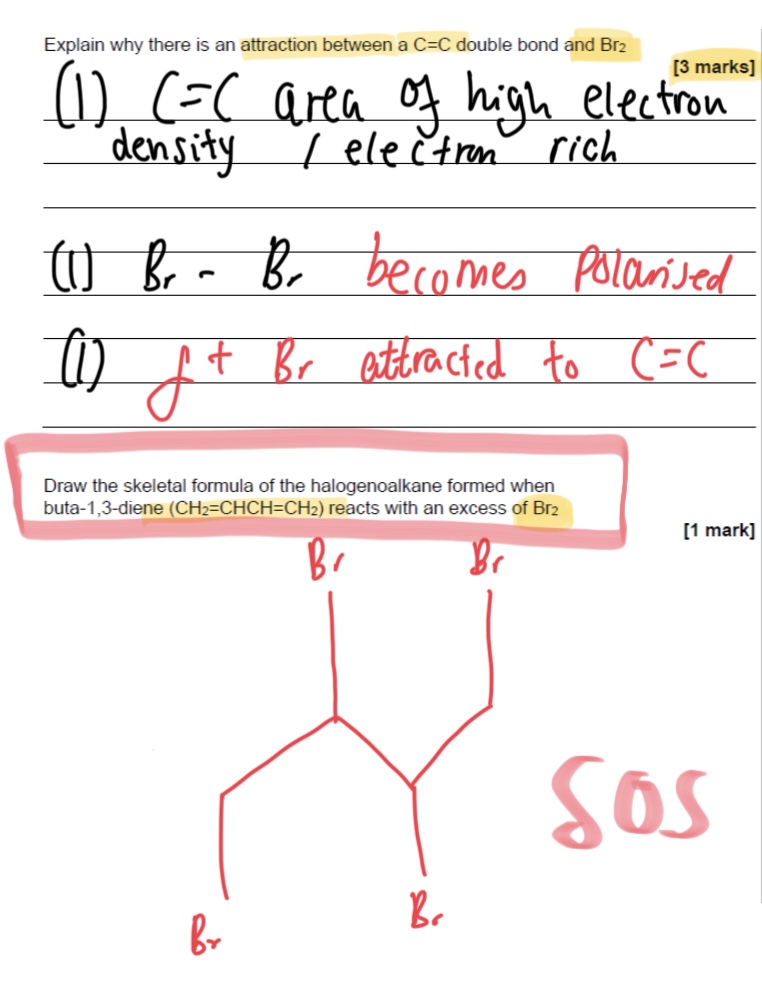 Explain why there is an attraction between a C=C double bond and Br₂
[3 marks]
(1) C=C area of high electron
density / electron rich
(1) Br - Br becomes polarised
(1) δ+ Br attracted to C=C
Draw the skeletal formula of the halogenoalkane formed when
buta-1,3-diene (CH₂=CHCH=CH₂) reacts with an excess of Br₂
[1 mark]
Br Br
SOS
Br Br